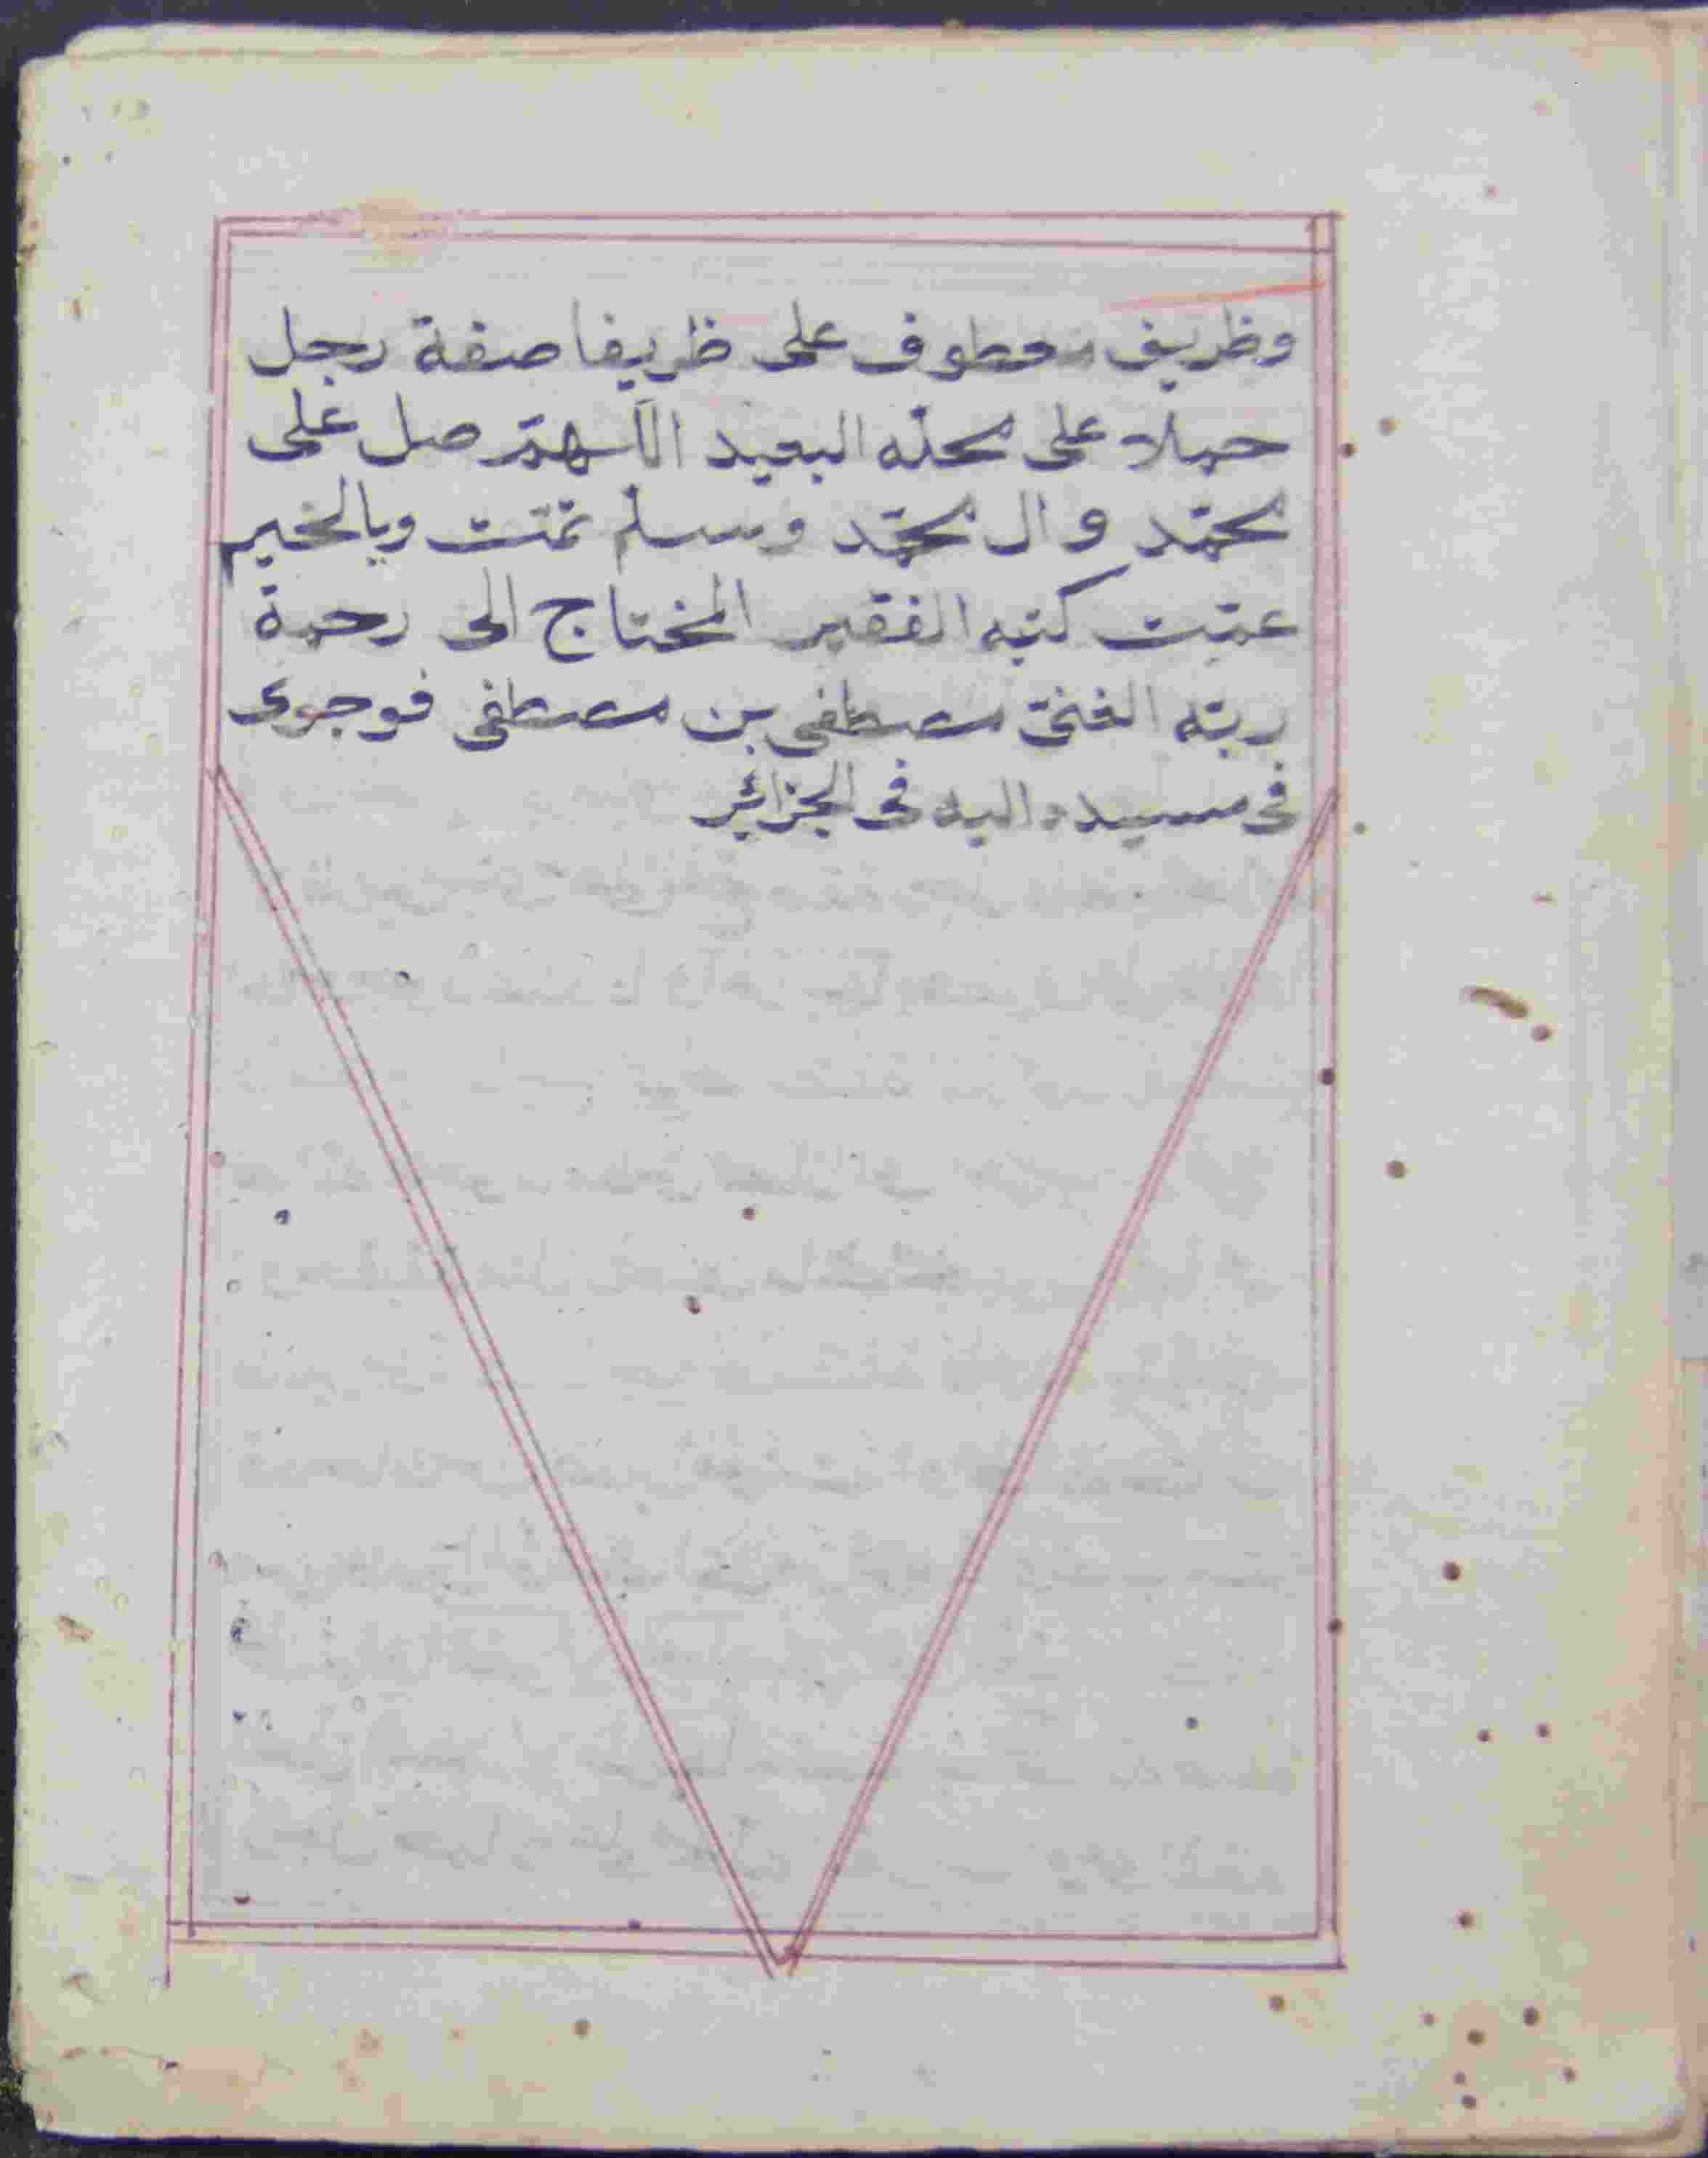 وظريف معطوف على ظريفا صفة رجل
حملا على محله البعيد اللّهمّ صل على
محمّد وال محمّد وسلم تمّت وبالخير
عمّت كتبه الفقير المحتاج الى رحمة
ربّه الغنىّ مصطفى بن مصطفى فوجوى
فى الجزائر